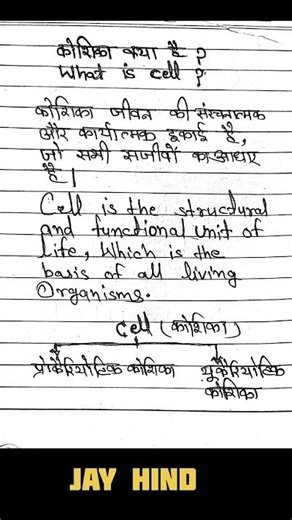 कोशिका क्या है ?
What is cell ?
कोशिका जीवन की संरचनात्मक
और कार्यात्मक इकाई है,
जो सभी सजीवों का आधार
है।
Cell is the structural
and functional unit of
life, Which is the
basis of all living
Organisms.
Cell (कोशिका)
प्रोकैरियोटिक कोशिका यूकैरियोटिक
कोशिका
JAY HIND